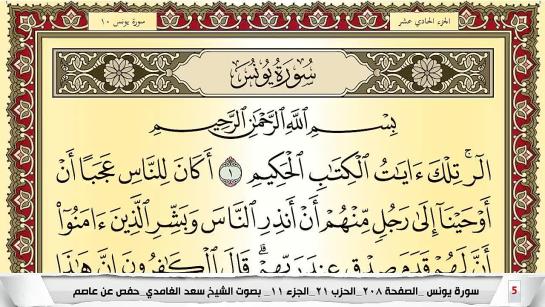 الجزء الحادي عشر
سورة يونس ١٠
سُورَةُ يُونُسَ
بِسْمِ ٱللَّهِ ٱلرَّحْمَٰنِ ٱلرَّحِيمِ
الٓر ۚ تِلْكَ ءَايَٰتُ ٱلْكِتَٰبِ ٱلْحَكِيمِ ١ أَكَانَ لِلنَّاسِ عَجَبًا أَنْ
أَوْحَيْنَآ إِلَىٰ رَجُلٍ مِّنْهُمْ أَنْ أَنذِرِ ٱلنَّاسَ وَبَشِّرِ ٱلَّذِينَ ءَامَنُوٓا۟
أَنَّ لَهُمْ قَدَمَ صِدْقٍ عِندَ رَبِّهِمْ ۗ قَالَ ٱلْكَٰفِرُونَ إِنَّ هَٰذَا
سورة يونس _ الصفحة ٢٠٨_ الحزب ٢١_ الجزء ١١ _ بصوت الشيخ سعد الغامدي_ حفص عن عاصم
5